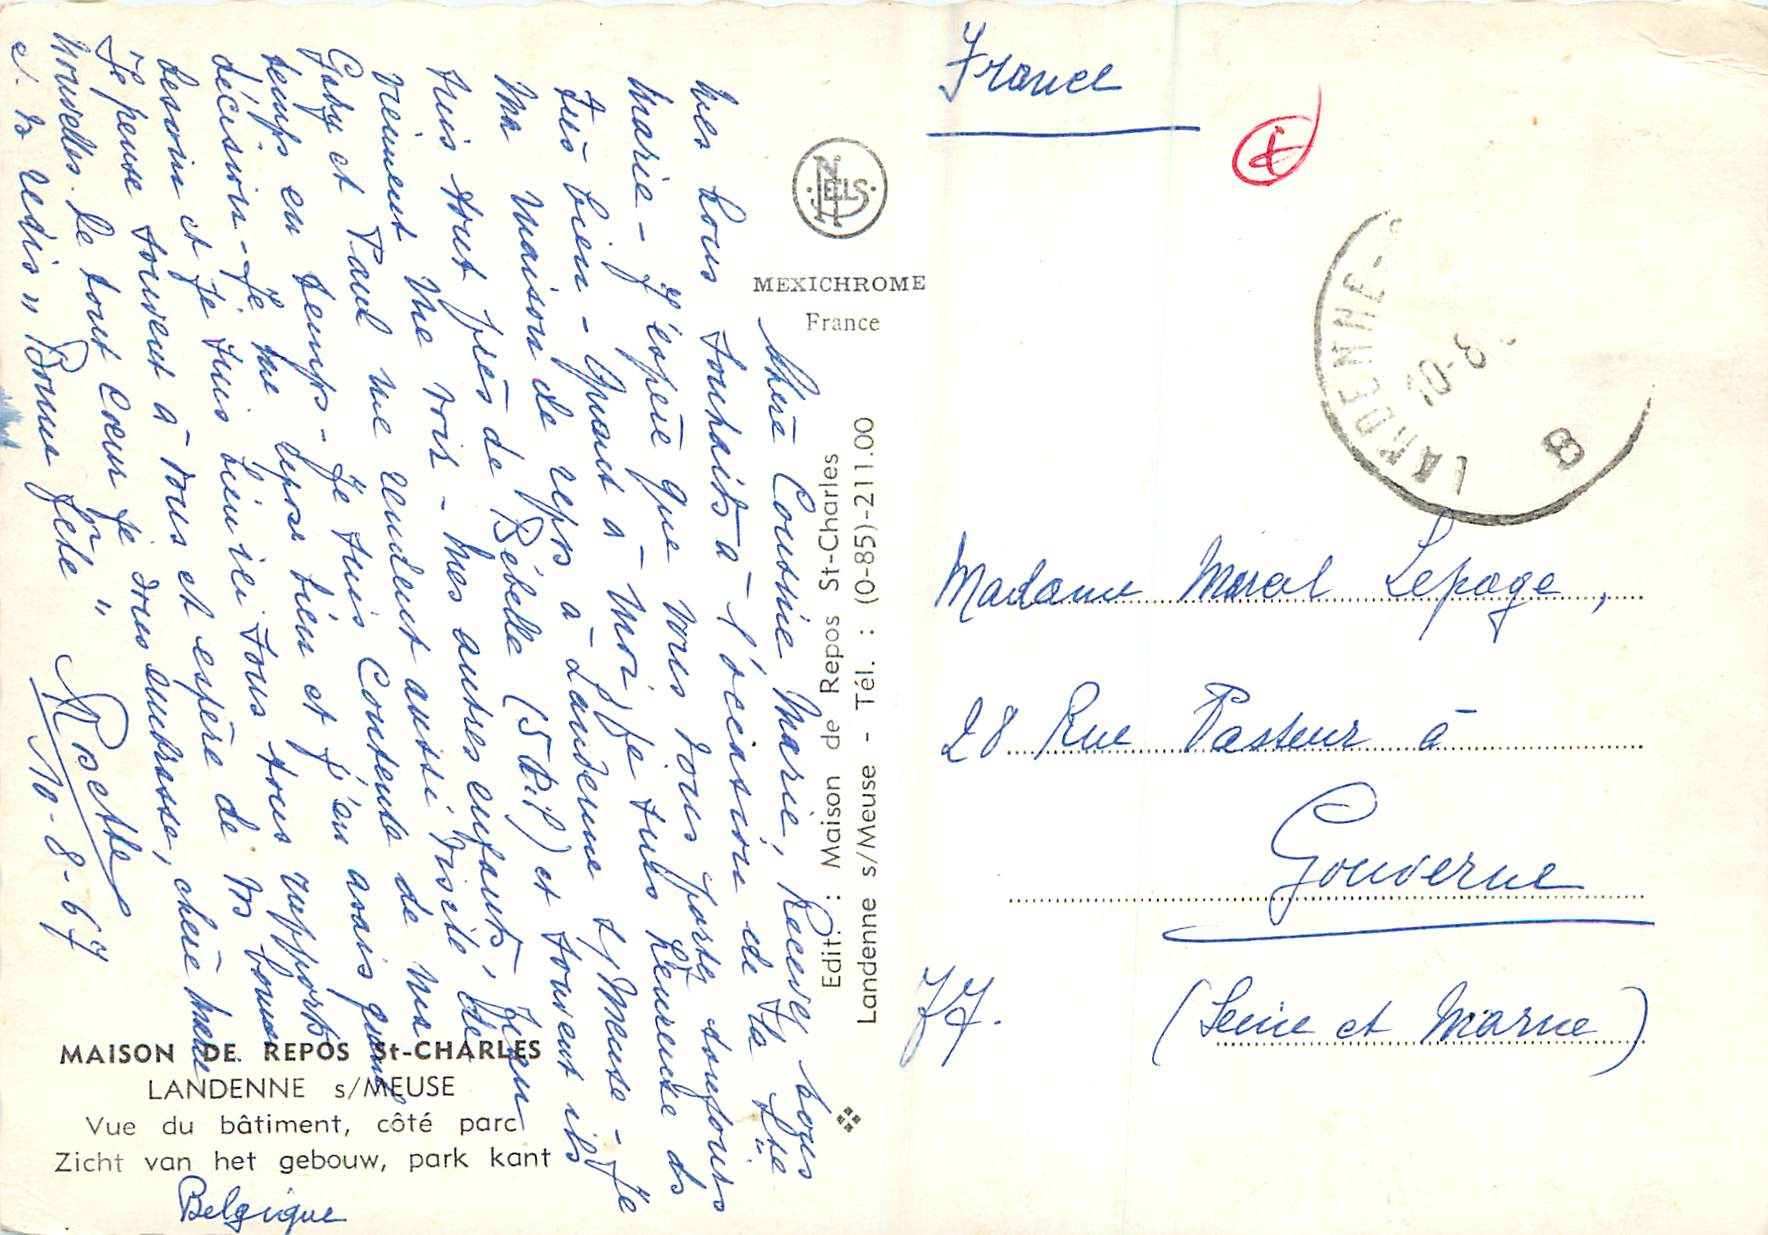 Chère Cousine Marie, Recevez nos
mes bons souhaits à l'occasion de la Ste
Marie - J'espère que vous vous portez toujours
très bien - Quant à moi, je suis heureuse ds
ma maison de repos à Landenne s/ Meuse - Je
suis tout près de Bébelle (5 ) et souvent ils
viennent me voir - Mes autres enfants, Jean
Gaby et Paul me rendent aussi visite de
temps en temps - Je suis contente de ma
décision - Je me repose bien et j'en avais grand
besoin et je suis bien ici sous tous rapports
Je pense souvent à vous et espère de vs bonnes
nouvelles. De tout cœur je vous embrasse, chère Marie
et vs redis " Bonne fête "
Rosette
10-8-67
NELS
MEXICHROME
France
Edit. : Maison de Repos St-Charles
Landenne s/Meuse - Tél. : (0-85)-211.00
MAISON DE REPOS St-CHARLES
LANDENNE s/MEUSE
Vue du bâtiment, côté parc
Zicht van het gebouw, park kant
Belgique
France
LANDENNE-
10-8
B
Madame Lepage,
28 Rue Pasteur à
Gouverne
77.
(Seine et Marne)